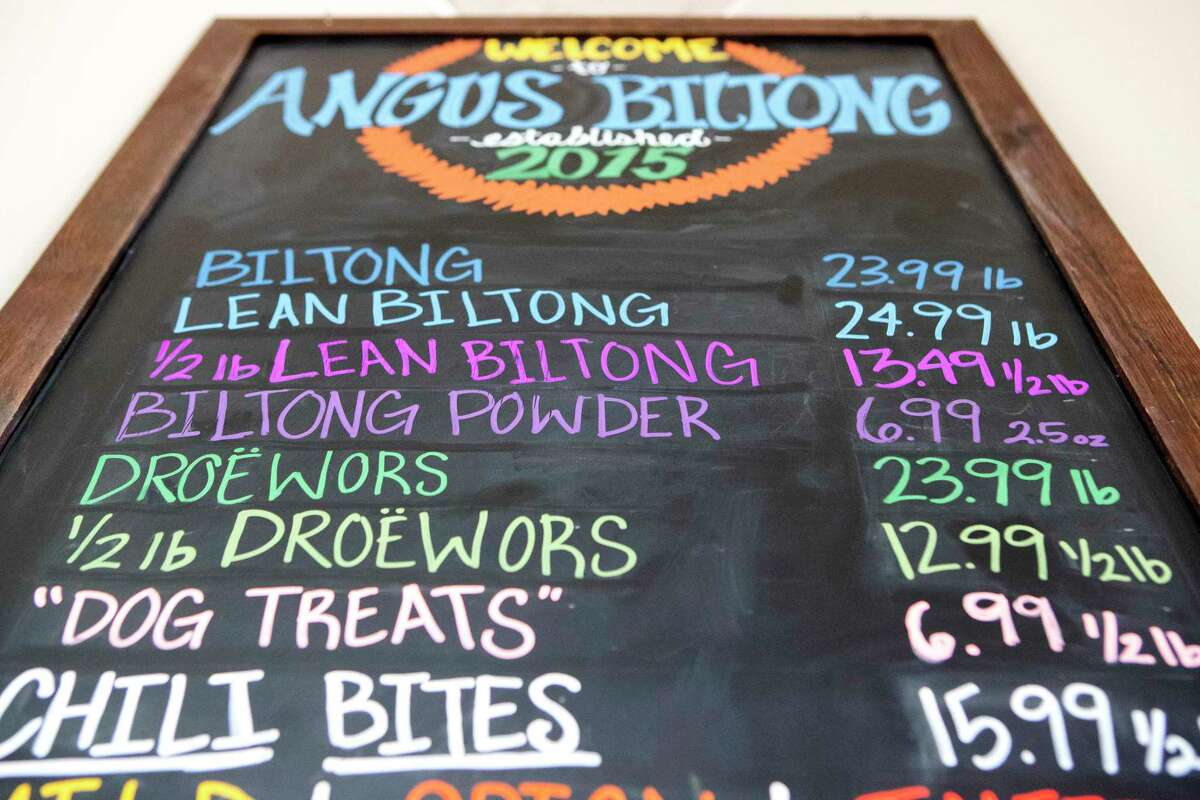 WELCOME
-to-
ANGUS BILTONG
-established-
2015
BILTONG 23.99 lb
LEAN BILTONG 24.99 lb
1/2 lb LEAN BILTONG 13.49 1/2 lb
BILTONG POWDER 6.99 2.5oz
DROËWORS 23.99 lb
1/2 lb DROËWORS 12.99 1/2 lb
"DOG TREATS" 6.99 1/2 lb
CHILI BITES 15.99 1/2
MILD |